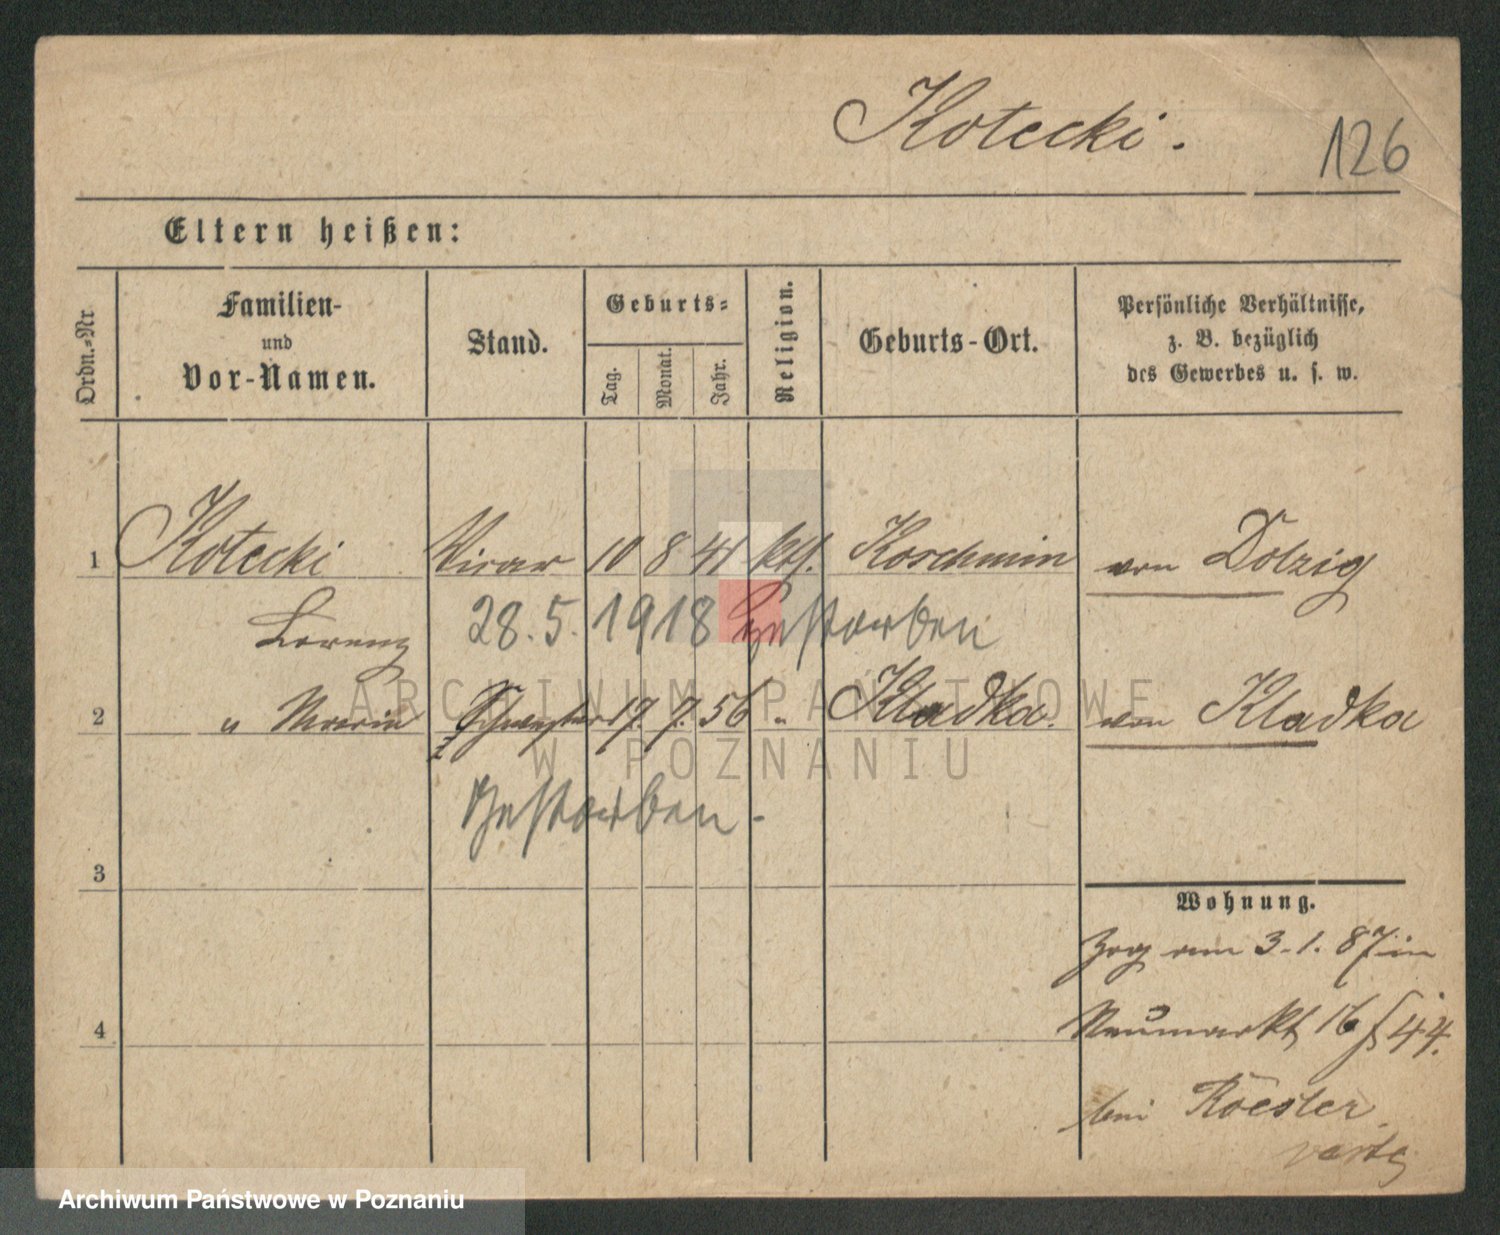 Kotecki.
126
Eltern heißen:
Ordn.-Nr.
Familien-
und
Vor-Namen.
Stand.
Geburts-
Tag.
Monat.
Jahr.
Religion.
Geburts-Ort.
Persönliche Verhältnisse,
z. B. bezüglich
des Gewerbes u. s. w.
1 Kotecki Vicar 10 8 41 kth. Koschmin von Dolzig
Lorenz 28.5.1918 Gestorben
2 " Maria Schwester 17. 7. 56 " Kladka. von Kladka
Gestorben-
3
Wohnung.
Zog am 3.1.87 in
4 Neumarkt 16
bei Roesler
ARCHIWUM PAŃSTWOWE
W POZNANIU
Archiwum Państwowe w Poznaniu